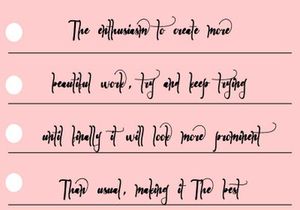 The enthusiasm to create more
beautiful work, try and keep trying
until finally it will look more prominent
Than usual, making it The best